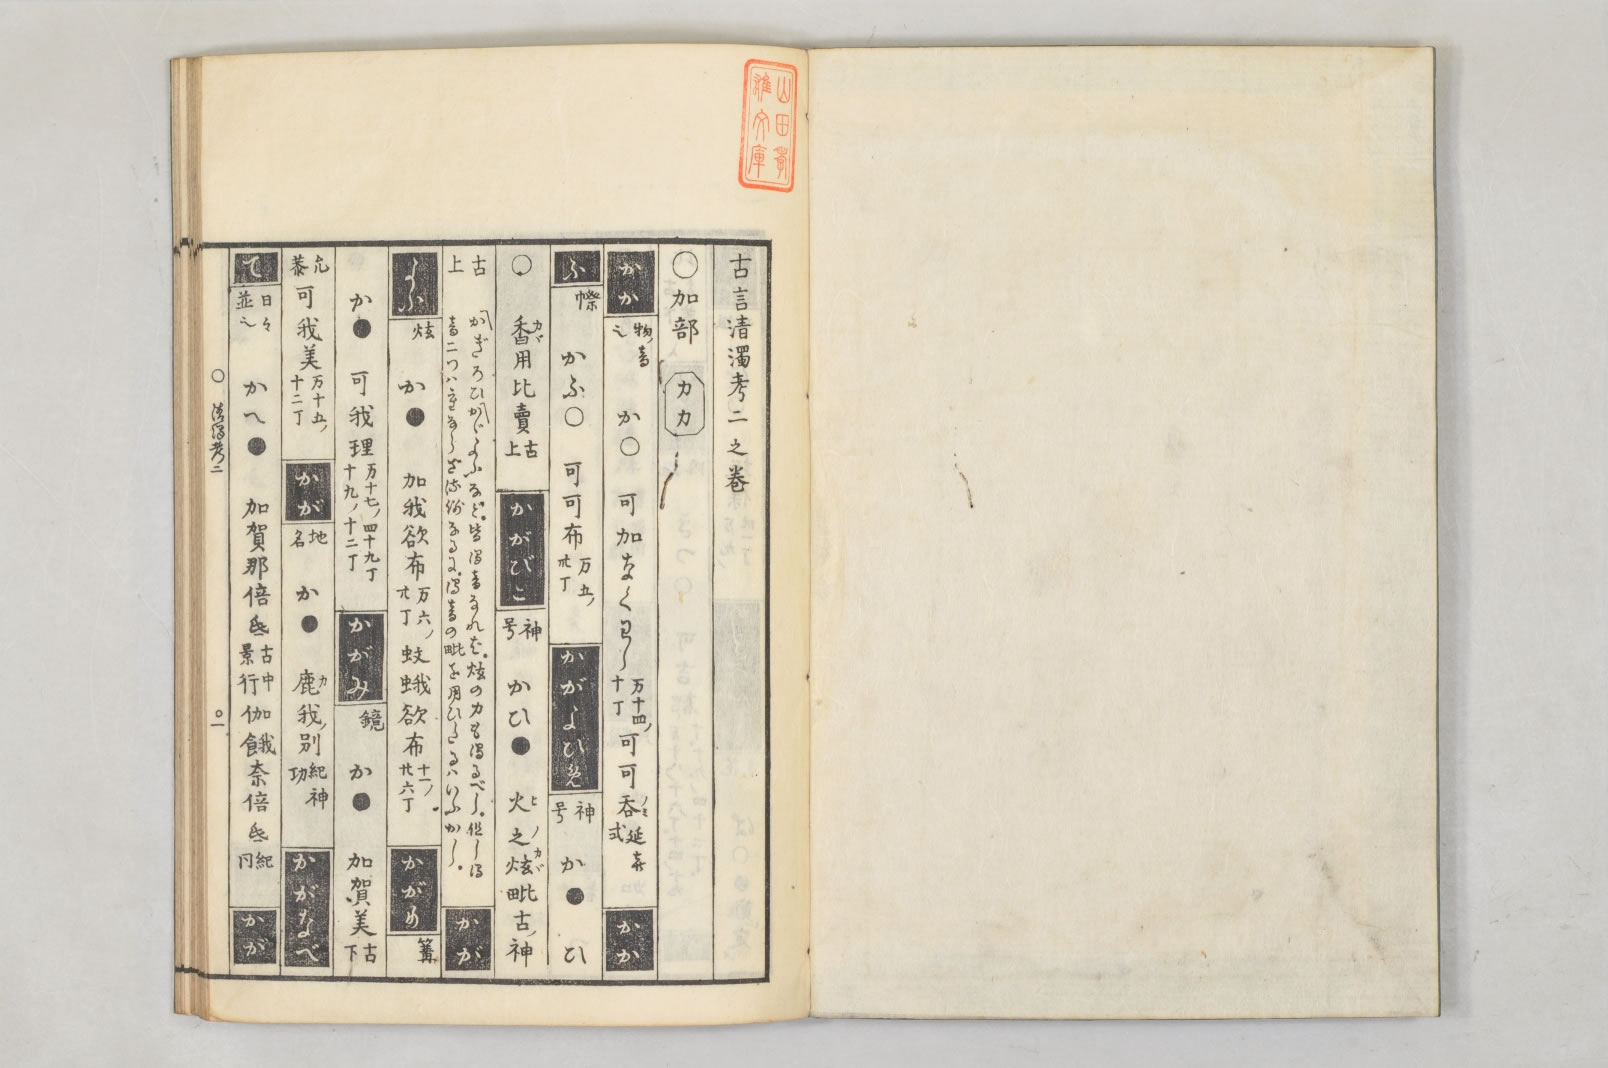 山田孝
雄文庫
古言清濁考二之巻
○加部 カカ
かか 物ノ音之 か○ 可加なくわし 万十四ノ十丁 可可呑ノミ 延喜式 かか
ふ 幣 かふ○ 可可布 万五ノ卅丁 かがよひめ 神号 か● ひ
○ 香カヾ用比賣 古上 かがびこ 神号 かひ● 火ヒ之ノ炫カヾ毗古ノ神
古上 かぎろひかゞよふなど皆濁音なれば炫のカも濁るべし但し濁音二つハ重ならざる例なるに濁音の毗を用ひたるハいぶかし かが
よふ 炫 か● 加我欲布 万六ノ卅丁 蚊蛾欲布 十一ノ廿六丁 かがり 篝
か● 可我理 万十七ノ四十九丁 十九ノ十二丁 かがみ 鏡 か● 加賀美 古下
允恭 可我美 万十五ノ十二丁 かが 地名 か● 鹿カ我ノ別 紀神功 かがなべ
て 日々並之 かへ● 加賀那倍弖 古中景行 伽餓奈倍弖 紀同 かが
○清濁考二 ○一